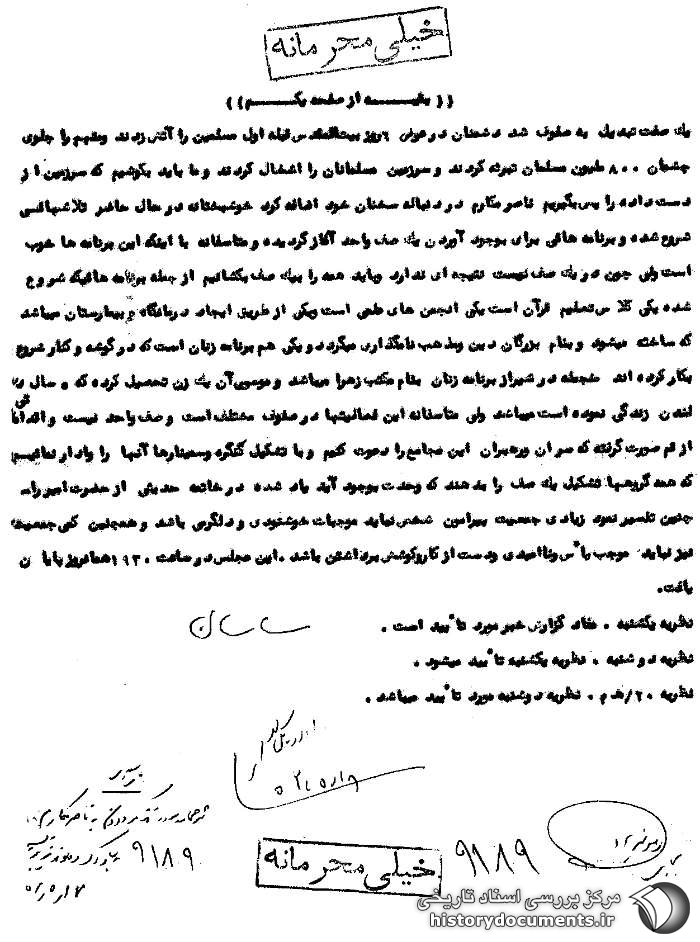 خیلی محرمانه
(( بقیـــــه از صفحه یکـــــم ))
یك صفت تبدیل به صفوف شد دشمنان در عوض ۶روز بیت‌المقدس قبله اول مسلمین را آتش زدند ومتهم را جلوی
چشمان ۸۰۰ ملیون مسلمان تبرئه کردند و سرزمین مسلمانان را اشغال کردند و ما باید بکوشیم که سرزمین از
دست داده را پس بگیریم ناصر مکارم در دنباله سخنان خود اضافه کرد خوشبختانه در حال حاضر تلاشهائی
شروع شده و برنامه هائی برای بوجود آوردن یك صف واحد آغاز گردیده و متاسفانه با اینکه این برنامه ها خوب
است ولی چون در یك صف نیست نتیجه ای ندارد وباید همه را بیك صف بکشانیم از جمله برنامه هائیکه شروع
شده یکی کلاس تعلیم قرآن است یکی انجمن های علمی است ویکی از طریق ایجاد درمانگاه و بیمارستان میباشد
که ساخته میشود و بنام بزرگان دین ومذهب نامگذاری میگردد و یکی هم برنامه زنان است که در گوشه و کنار شروع
بکار کرده اند منجمله در شیراز برنامه زنان بنام مکتب زهرا میباشد و موسس آن یك زن تحصیل کرده که سال در
لندن زندگی نموده است میباشد ولی متاسفانه این فعالیتها در صفوف مختلف است و صف واحد نیست و اقداماتی
از قم صورت گرفته که سران ورهبران این مجامع را دعوت کنیم و با تشکیل کنگره وسمینارها آنها را وادار نمائیم
که همه گروهها تشکیل یك صف را بدهند که وحدت بوجود آید یاد شده در خاتمه حدیثی از حضرت امیر را
چنین تفسیر نمود زیادی جمعیت پیرامون شخص نباید موجبات خوشنودی و دلگرمی باشد و همچنین کمی جمعیت
نیز نباید موجب یأس وناامیدی ودست از کار وکوشش برداشتن باشد . این مجلس در ساعت ۱۹۳۰ همانروز پایان
یافت.
نظریه یکشنبه . مفاد گزارش خبر مورد تأیید است .
نظریه دوشنبه . نظریه یکشنبه تأیید میشود .
نظریه ۲۰/ ه م . نظریه دوشنبه مورد تأیید میباشد .
۹۱۸۹
خیلی محرمانه
۹۱۸۹
مرکز بررسی اسناد تاریخی
historydocuments.ir